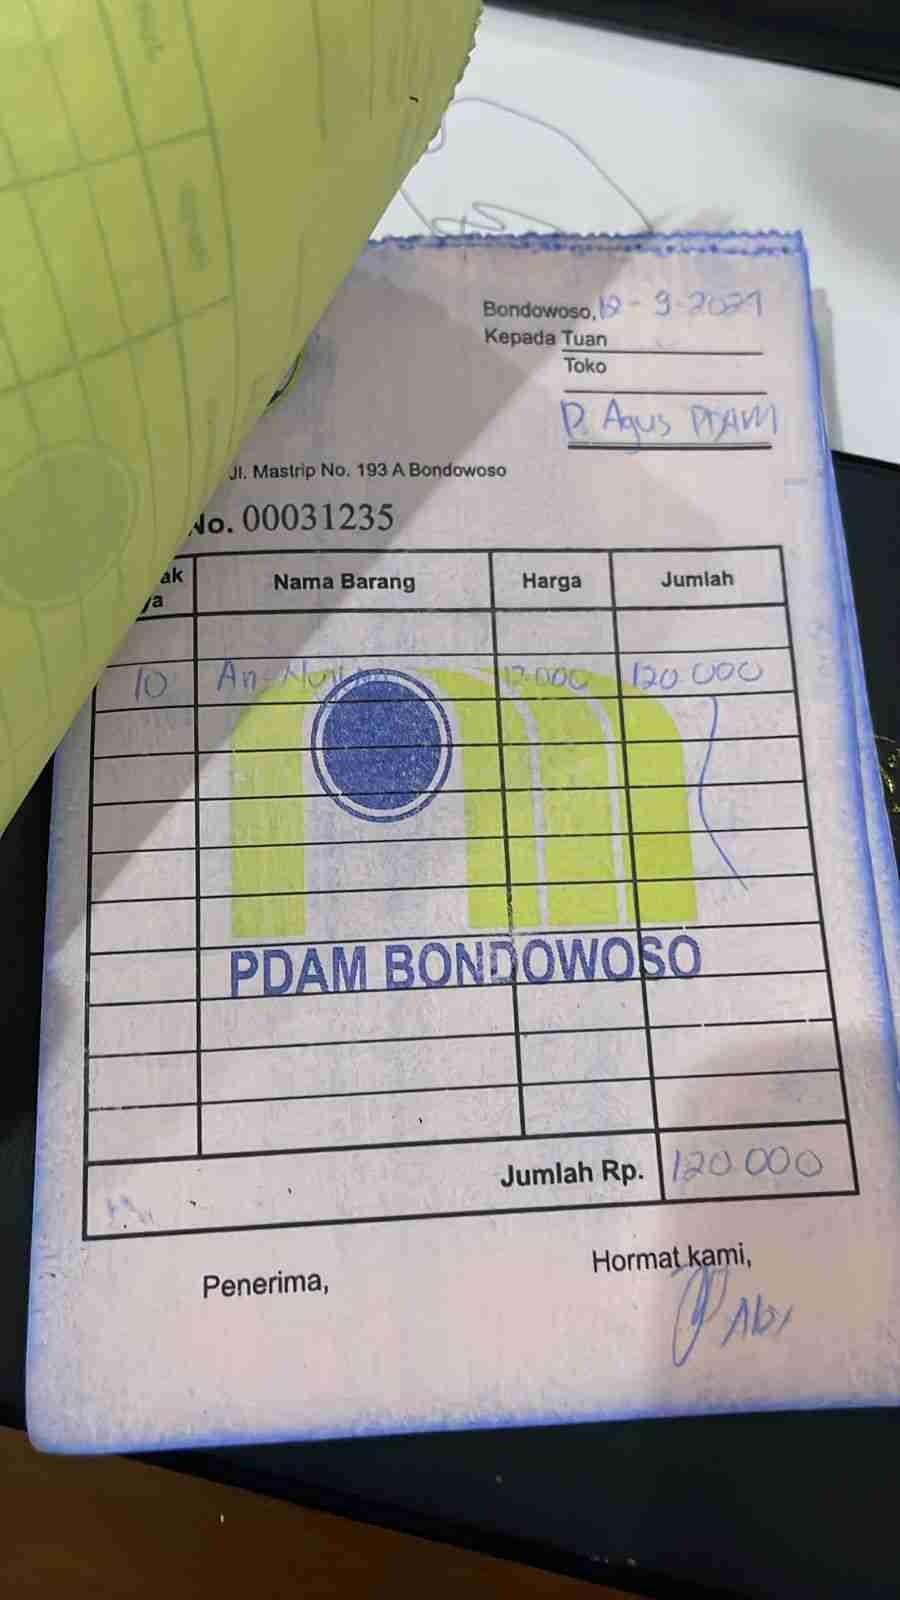 Bondowoso, 12-9-2021
Kepada Tuan
Toko
P. Agus PDAM
Jl. Mastrip No. 193 A Bondowoso
No. 00031235
ak
ya
Nama Barang Harga Jumlah
10 An-Nur 12.000 120.000
PDAM BONDOWOSO
Jumlah Rp. 120.000
Penerima, Hormat kami,